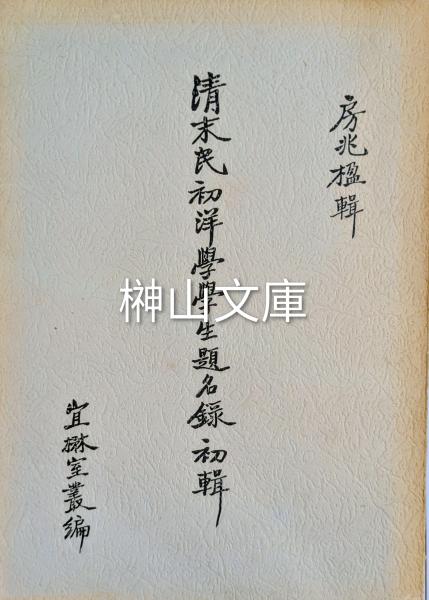 房兆楹輯
清末民初洋學學生題名錄初輯
宜楙室叢編
榊山文庫